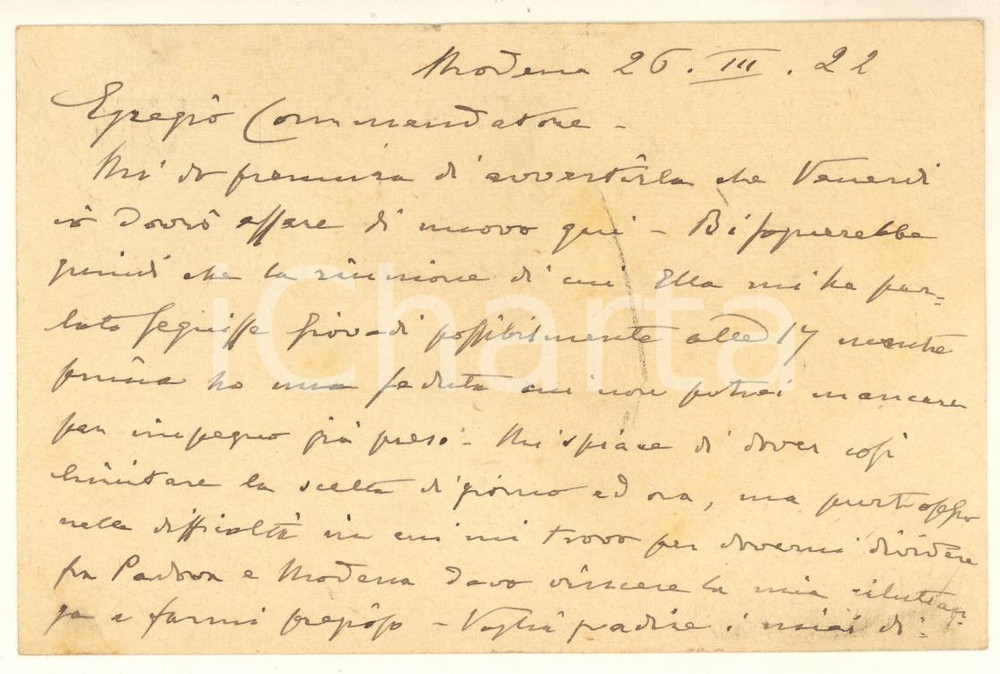 Modena 26. III. 22
Egregio Commendatore -
Mi do premura di avvertirla che Venerdì
io dovrò essere di nuovo qui - Bisognerebbe
quindi che la riunione di cui Ella mi ha par-
lato seguisse Giovedì possibilmente alle 17 mentre
prima ho una seduta cui non potrei mancare
per impegno già preso - Mi spiace di dover così
limitare la scelta di giorno ed ora, ma purtroppo
nelle difficoltà in cui mi trovo per dovermi dividere
fra Padova e Modena devo vincere la mia riluttan-
za a farmi prezioso - Voglia gradire i miei di-
iCharta